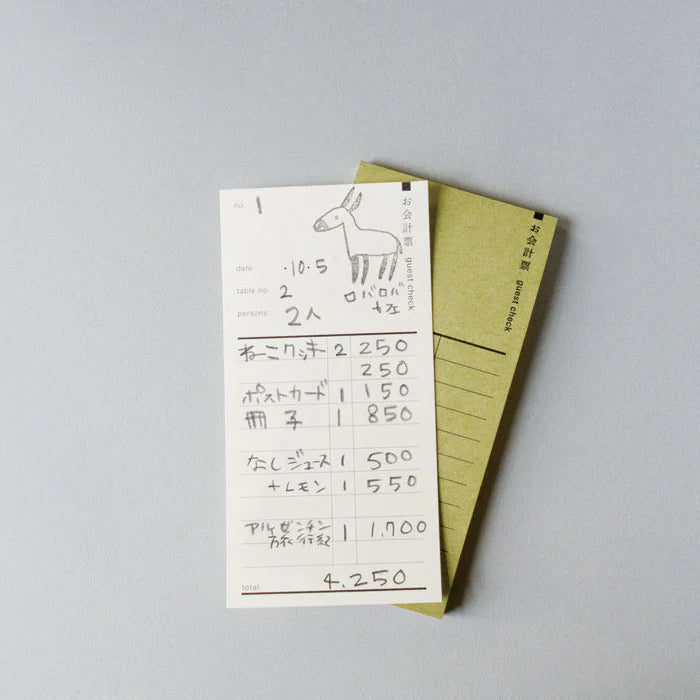 no. 1
お会計票 guest check
date ・10・5
table no. 2
persons 2人
ロバロバ
カフェ
ねこクッキー 2 250
250
ポストカード 1 150
冊子 1 850
なしジュース 1 500
+レモン 1 550
アルゼンチン
旅行紀 1 1,700
total 4,250
お会計票 guest check